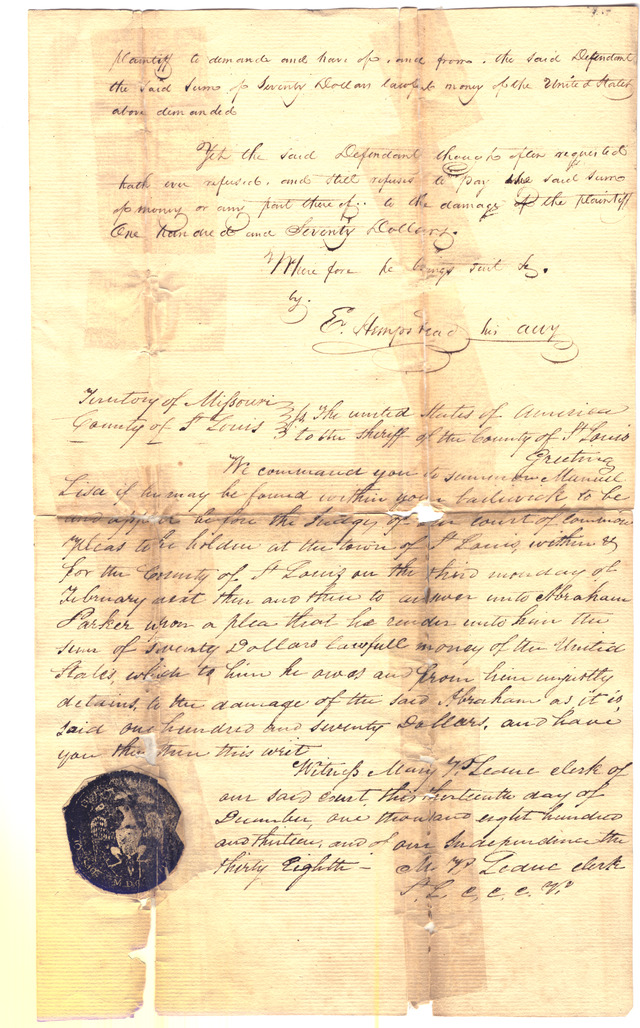 plaintiff to demande and have of, and from, the said Defendant
the said Sum of Seventy Dollars lawful money of the United States
above demanded
Yet the said Defendant though often requested
hath ever refused, and still refuses to pay the said Sum
of money or any part there of.. to the damage of the plaintiff
One handred and Seventy Dollars.
Where fore he brings suit &c.
by.
E. Hempstead his atty
Territory of Missouri
County of St Louis
The united States of America
to the Sheriff of the County of St Louis
Greeting
We command you to summon Manuel
Lisa if he may be found within your bailiwick to be
and appear before the Judges of our court of common
Pleas to be holden at the town of St Louis within &
for the County of St Louis on the third monday of
February next then and there to answer unto Abraham
Parker upon a plea that he render unto him the
sum of seventy Dollars lawfull money of the United
States, which to him he owes and from him unjustly
detains, to the damage of the said Abraham as it is
said one hundred and seventy Dollars, and have
you then there this writ
Witness Mary Pp Leduc clerk of
our said court, this thirteenth day of
December, one thousand eight hundred
and thirteen, and of our Independence the
thirty Eighth — M. P. Leduc clerk
S. L. C. C. C. P.